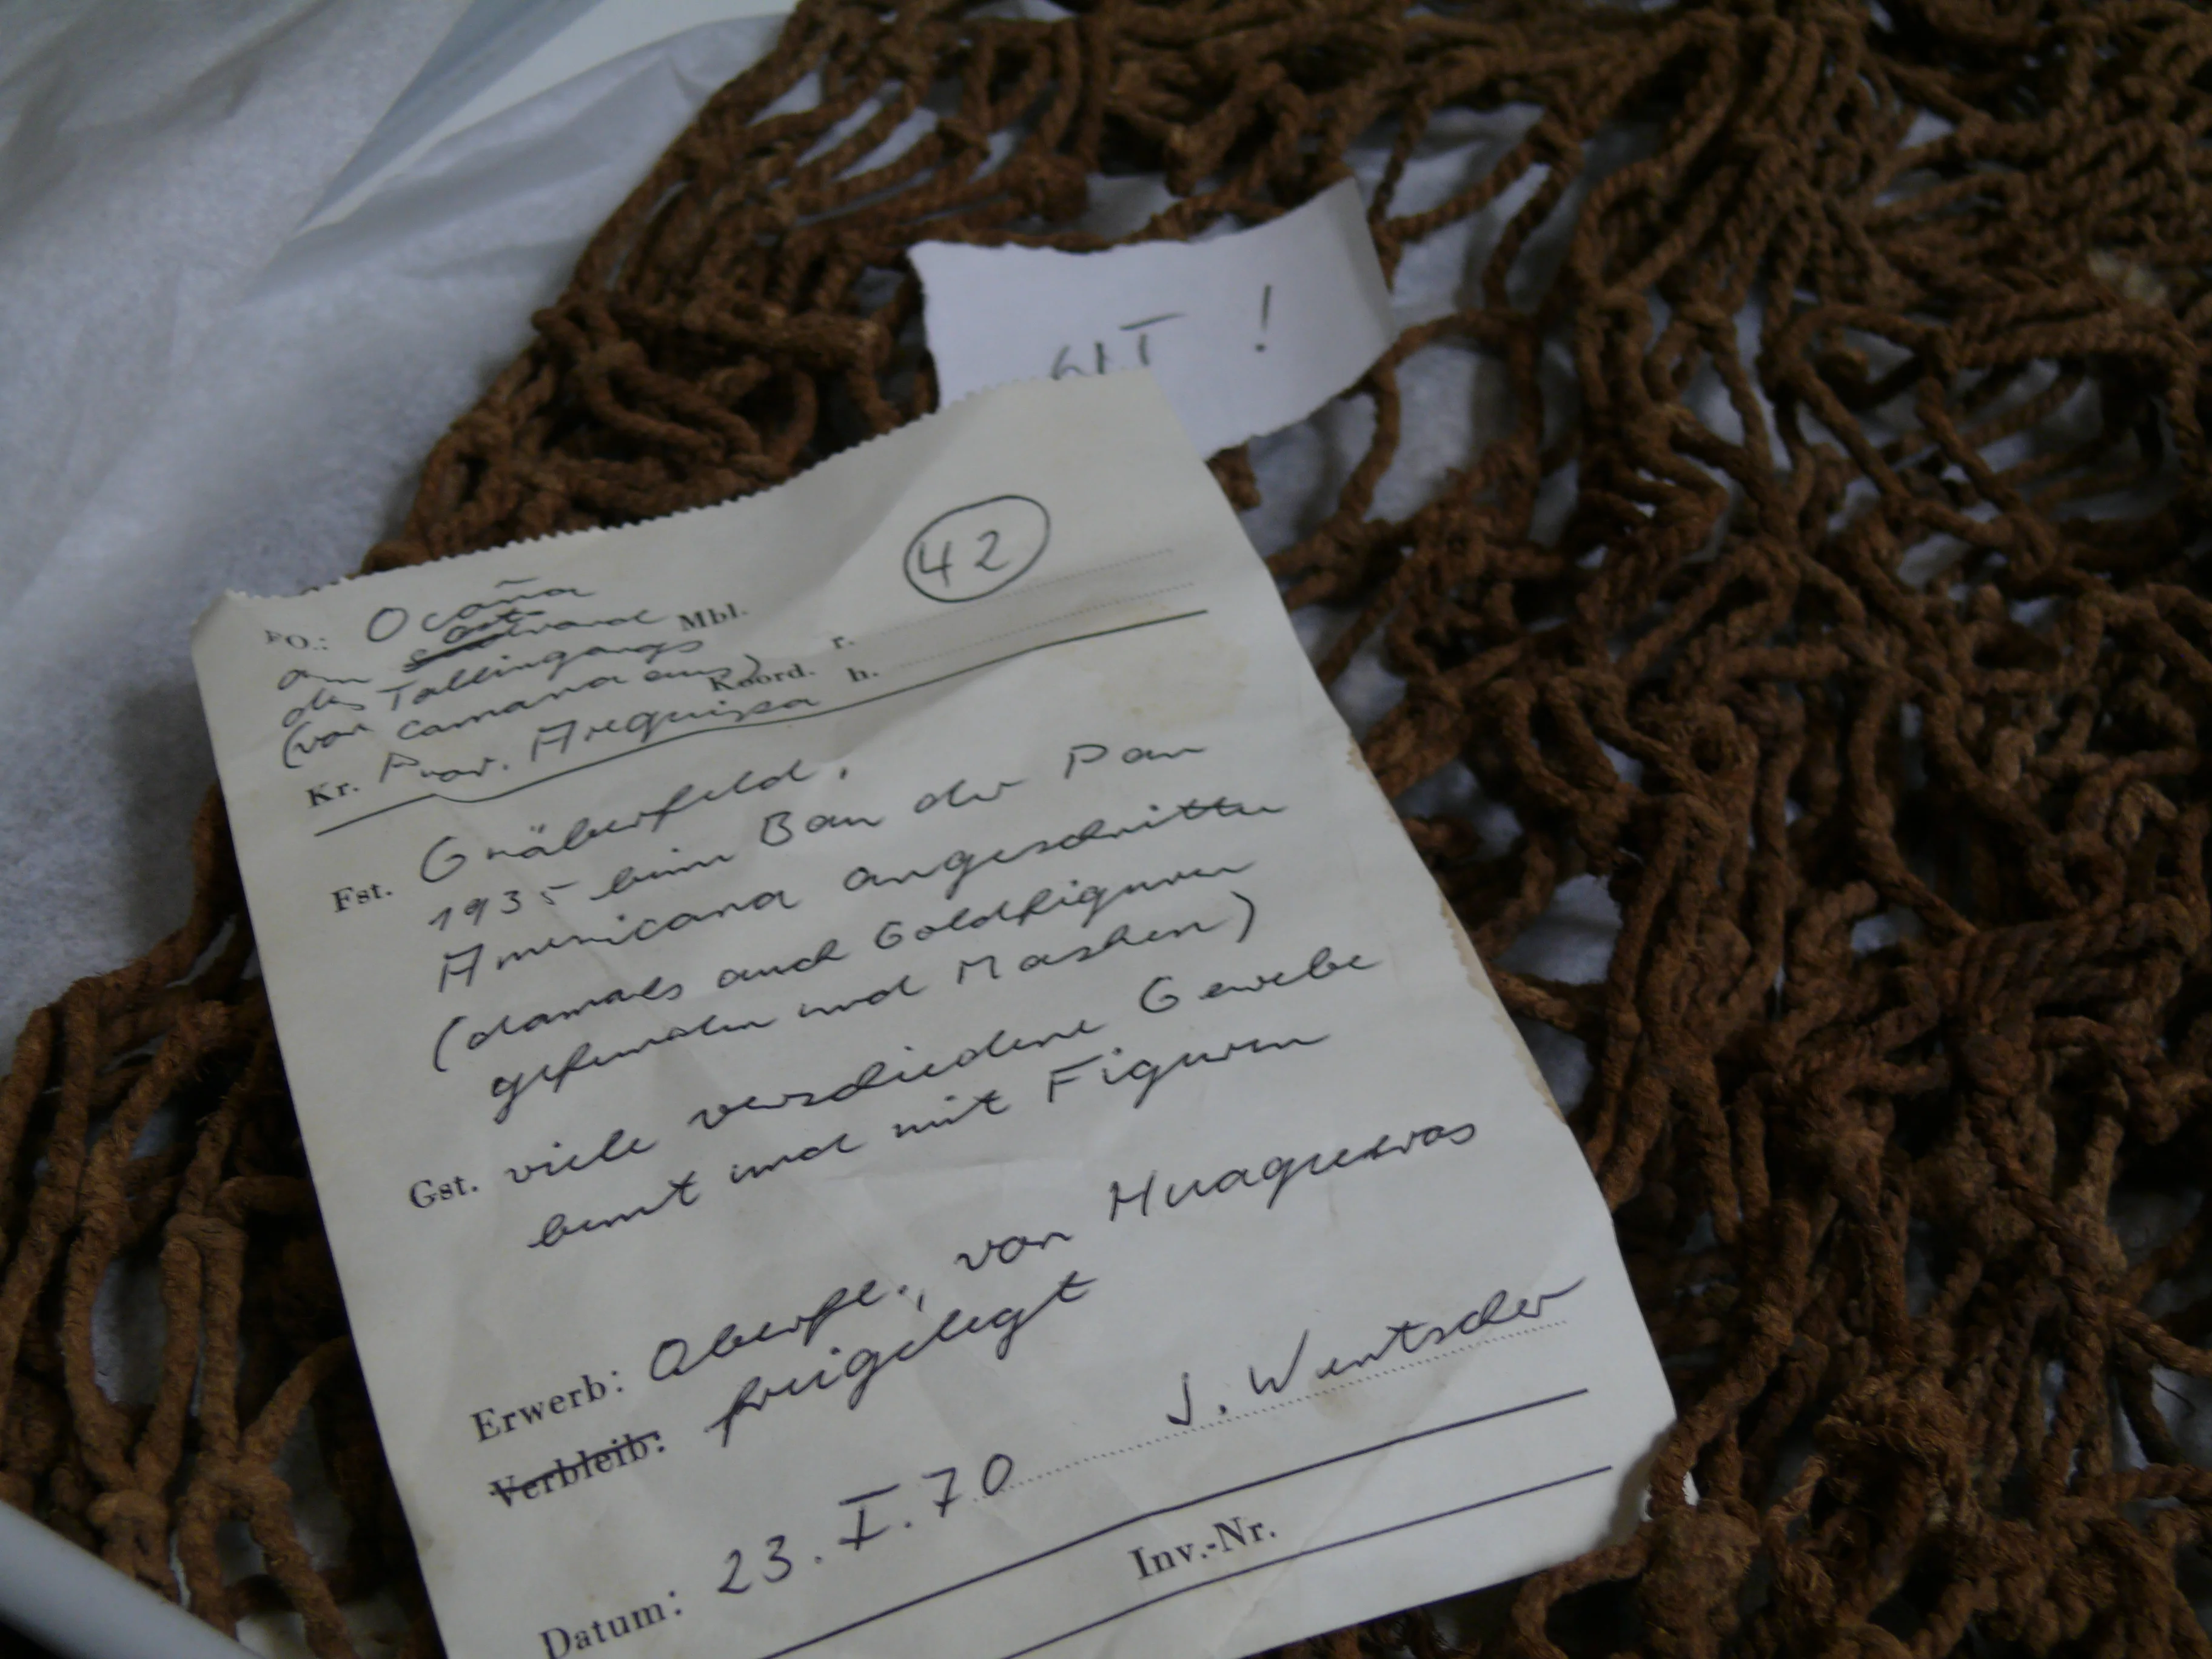 !
42
FO.: Ocaña
am ostrand Mbl.
des Taleingangs r.
(von Camana aus) Koord. h.
Kr. Prov. Arequipa
Fst. Gräberfeld,
1935 beim Bau der Pan
Americana angeschnitten
(damals auch Goldfiguren
gefunden und Masken)
Gst. viele verschiedene Gewebe
bunt und mit Figuren
Erwerb: Oberfl., von Huaqueros
Verbleib: freigelegt
Datum: 23.I.70 J. Wentscher
Inv.-Nr.